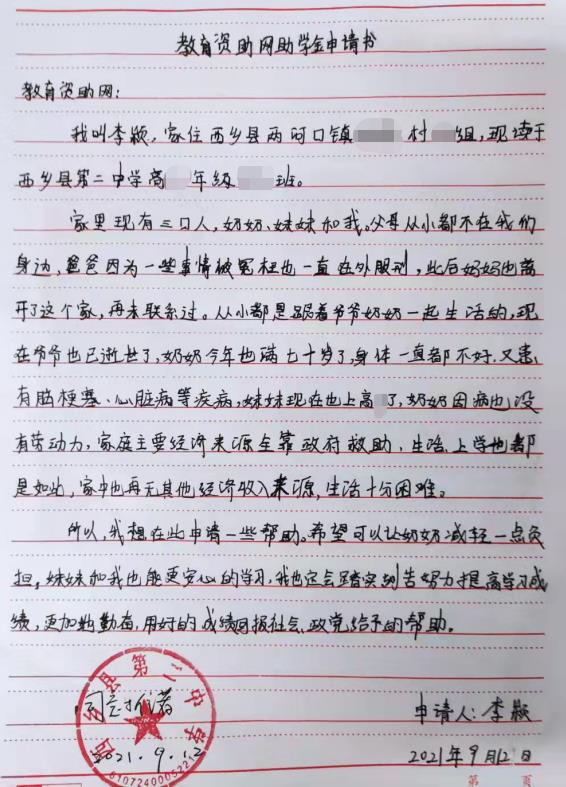 教育资助网助学金申请书
教育资助网：
我叫李颖，家住西乡县两河口镇 村 组，现读于
西乡县第二中学高 年级 班。
家里现有三口人，奶奶、妹妹和我。父母从小都不在我们
身边，爸爸因为一些事情被冤枉也一直在外服刑，此后妈妈也离
开了这个家，再未联系过。从小都是跟着爷爷奶奶一起生活的，现
在爷爷也已逝世了，奶奶今年也满七十岁了，身体一直都不好，又患
有脑梗塞、心脏病等疾病，妹妹现在也上高 了，奶奶因病也没
有劳动力，家庭主要经济来源全靠政府救助，生活、上学也都
是如此，家中也再无其他经济收入来源，生活十分困难。
所以，我想在此申请一些帮助。希望可以让奶奶减轻一点负
担，妹妹和我也能更安心的学习，我也定会踏实刻苦努力提高学习成
绩，更加地勤奋，用好的成绩回报社会、政党给予的帮助。
西乡县第二中学
申请人：李颖
2021.9.12
2021年9月12日
6107240005221
第 页